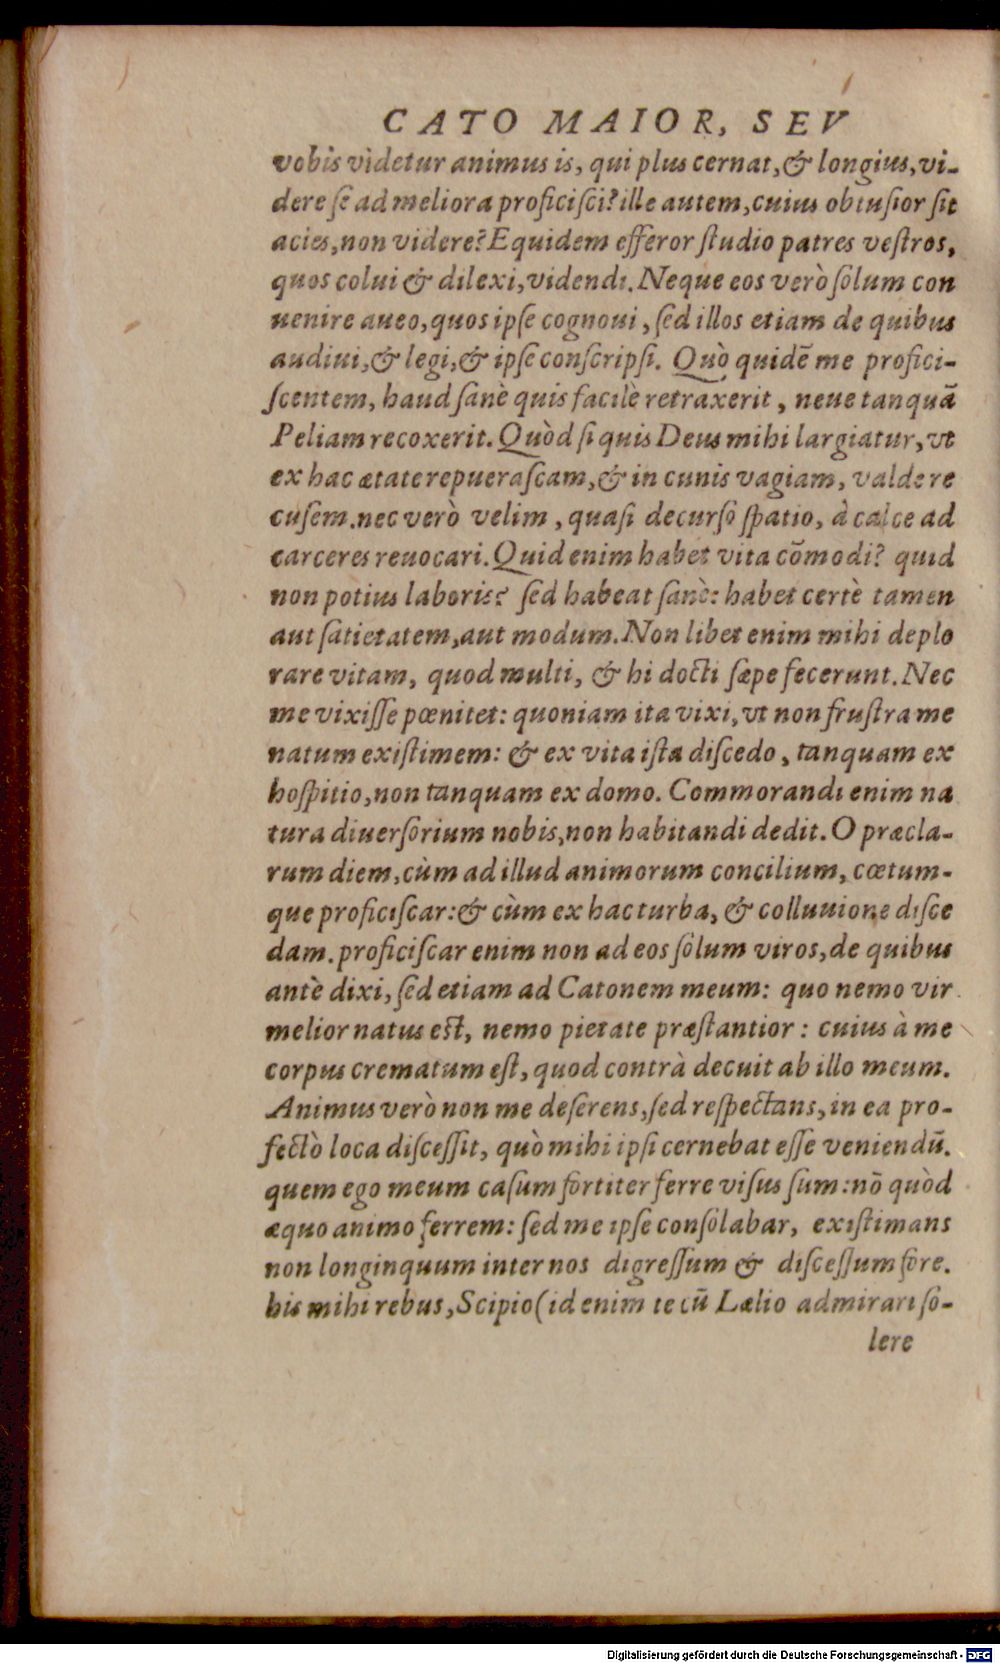 CATO MAIOR, SEV
vobis videtur animus is, qui plus cernat, & longius, vi-
dere se ad meliora proficisci? ille autem, cuius obtusior sit
acies, non videre? Equidem efferor studio patres vestros,
quos colui & dilexi, videndi. Neque eos verò solum con
uenire aueo, quos ipse cognoui, sed illos etiam de quibus
audiui, & legi, & ipse conscripsi. Quò quidẽ me profici-
scentem, haud sanè quis facilè retraxerit, neue tanquã
Peliam recoxerit. Quòd si quis Deus mihi largiatur, vt
ex hac ætate repuerascam, & in cunis vagiam, valde re
cusem. nec verò velim, quasi decurso spatio, à calce ad
carceres reuocari. Quid enim habet vita cõmodi? quid
non potius laboris? sed habeat sanè: habet certè tamen
aut satietatem, aut modum. Non libet enim mihi deplo
rare vitam, quod multi, & hi docti sæpe fecerunt. Nec
me vixisse pœnitet: quoniam ita vixi, vt non frustra me
natum existimem: & ex vita ista discedo, tanquam ex
hospitio, non tanquam ex domo. Commorandi enim na
tura diuersorium nobis, non habitandi dedit. O præcla-
rum diem, cùm ad illud animorum concilium, cœtum-
que proficiscar: & cùm ex hac turba, & colluuione disce
dam. proficiscar enim non ad eos solum viros, de quibus
antè dixi, sed etiam ad Catonem meum: quo nemo vir
melior natus est, nemo pietate præstantior: cuius à me
corpus crematum est, quod contrà decuit ab illo meum.
Animus verò non me deserens, sed respectans, in ea pro-
fectò loca discessit, quò mihi ipsi cernebat esse veniendũ.
quem ego meum casum fortiter ferre visus sum: nõ quòd
æquo animo ferrem: sed me ipse consolabar, existimans
non longinquum inter nos digressum & discessum fore.
his mihi rebus, Scipio (id enim te cũ Lælio admirari so-
lere
Digitalisierung gefördert durch die Deutsche Forschungsgemeinschaft - DFG